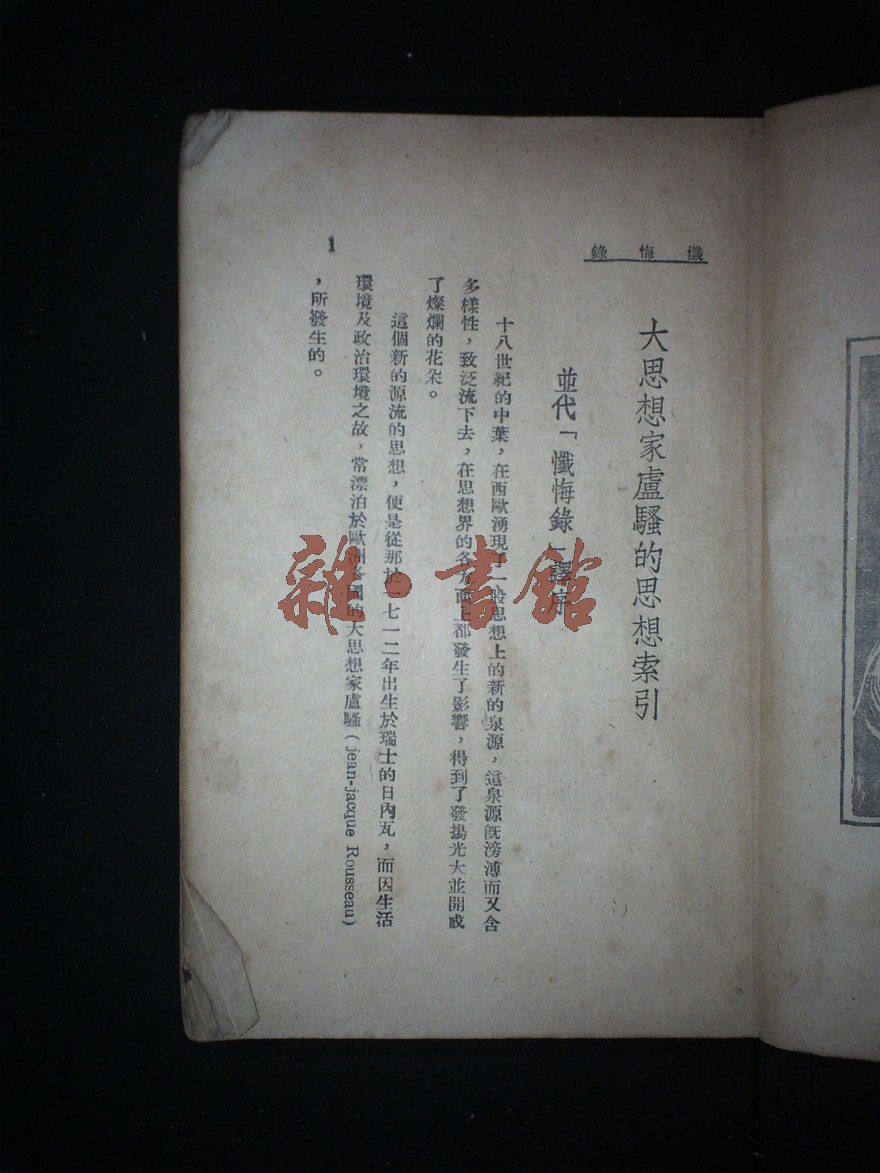 懺悔錄
大思想家盧騷的思想索引
並代「懺悔錄」譯序
十八世紀的中葉，在西歐湧現了一股思想上的新的泉源，這泉源旣滂溥而又含
多樣性，致泛流下去，在思想界的各方面上都發生了影響，得到了發揚光大並開成
了燦爛的花朵。
這個新的源流的思想，便是從那於一七一二年出生於瑞士的日內瓦，而因生活
環境及政治環境之故，常漂泊於歐洲各國的大思想家盧騷（jean-jacque Rousseau）
，所發生的。
1
雜·書館